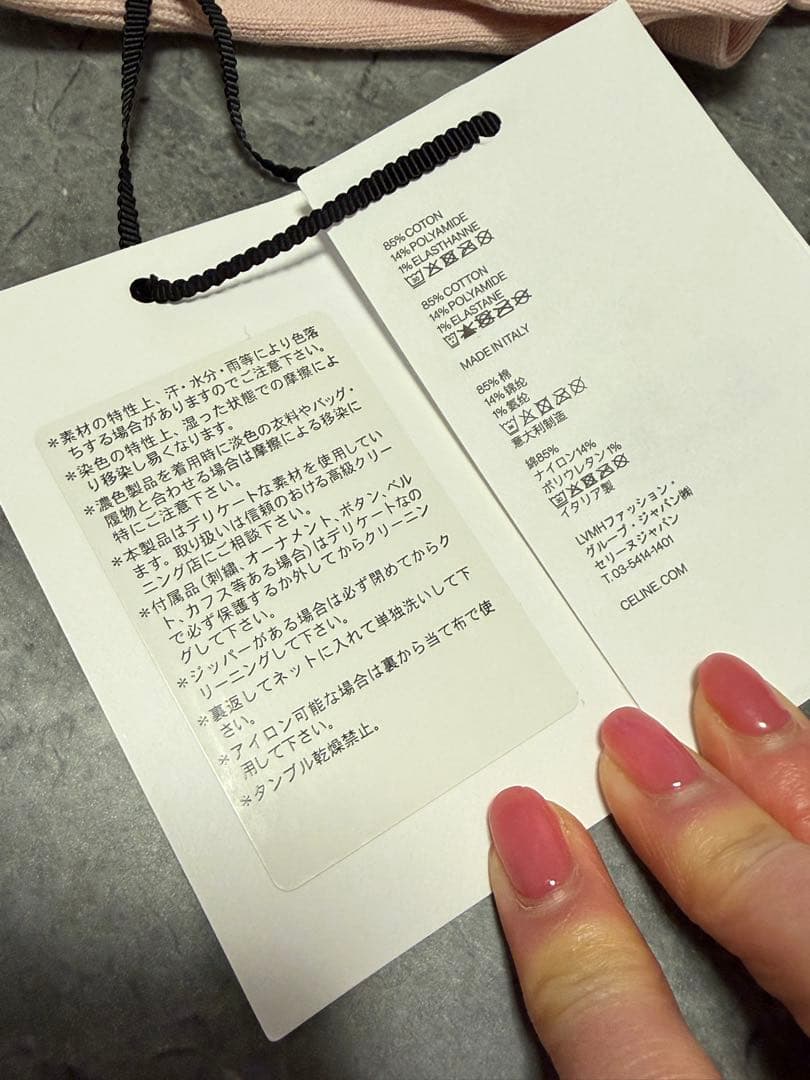 *素材の特性上、汗・水分・雨等により色落
ちする場合がありますのでご注意下さい。
*染色の特性上、湿った状態での摩擦によ
り移染し易くなります。
*濃色製品を着用時に淡色の衣料やバッグ・
履物と合わせる場合は摩擦による移染に
特にご注意下さい。
*本製品はデリケートな素材を使用してい
ます。取り扱いは信頼のおける高級クリー
ニング店にご相談下さい。
*付属品(刺繍、オーナメント、ボタン、ベル
ト、カフス等ある場合)はデリケートなの
で必ず保護するか外してからクリーニン
グして下さい。
*ジッパーがある場合は必ず閉めてからク
リーニングして下さい。
*裏返してネットに入れて単独洗いして下
さい。
*アイロン可能な場合は裏から当て布で使
用して下さい。
*タンブル乾燥禁止。
85% COTON
14% POLYAMIDE
1% ELASTHANNE
30
85% COTTON
14% POLYAMIDE
1% ELASTANE
MADE IN ITALY
85% 棉
14% 锦纶
1% 氨纶
意大利制造
綿85%
ナイロン14%
ポリウレタン1%
イタリア製
LVMHファッション・
グループ・ジャパン㈱
セリーヌジャパン
T.03-5414-1401
CELINE.COM